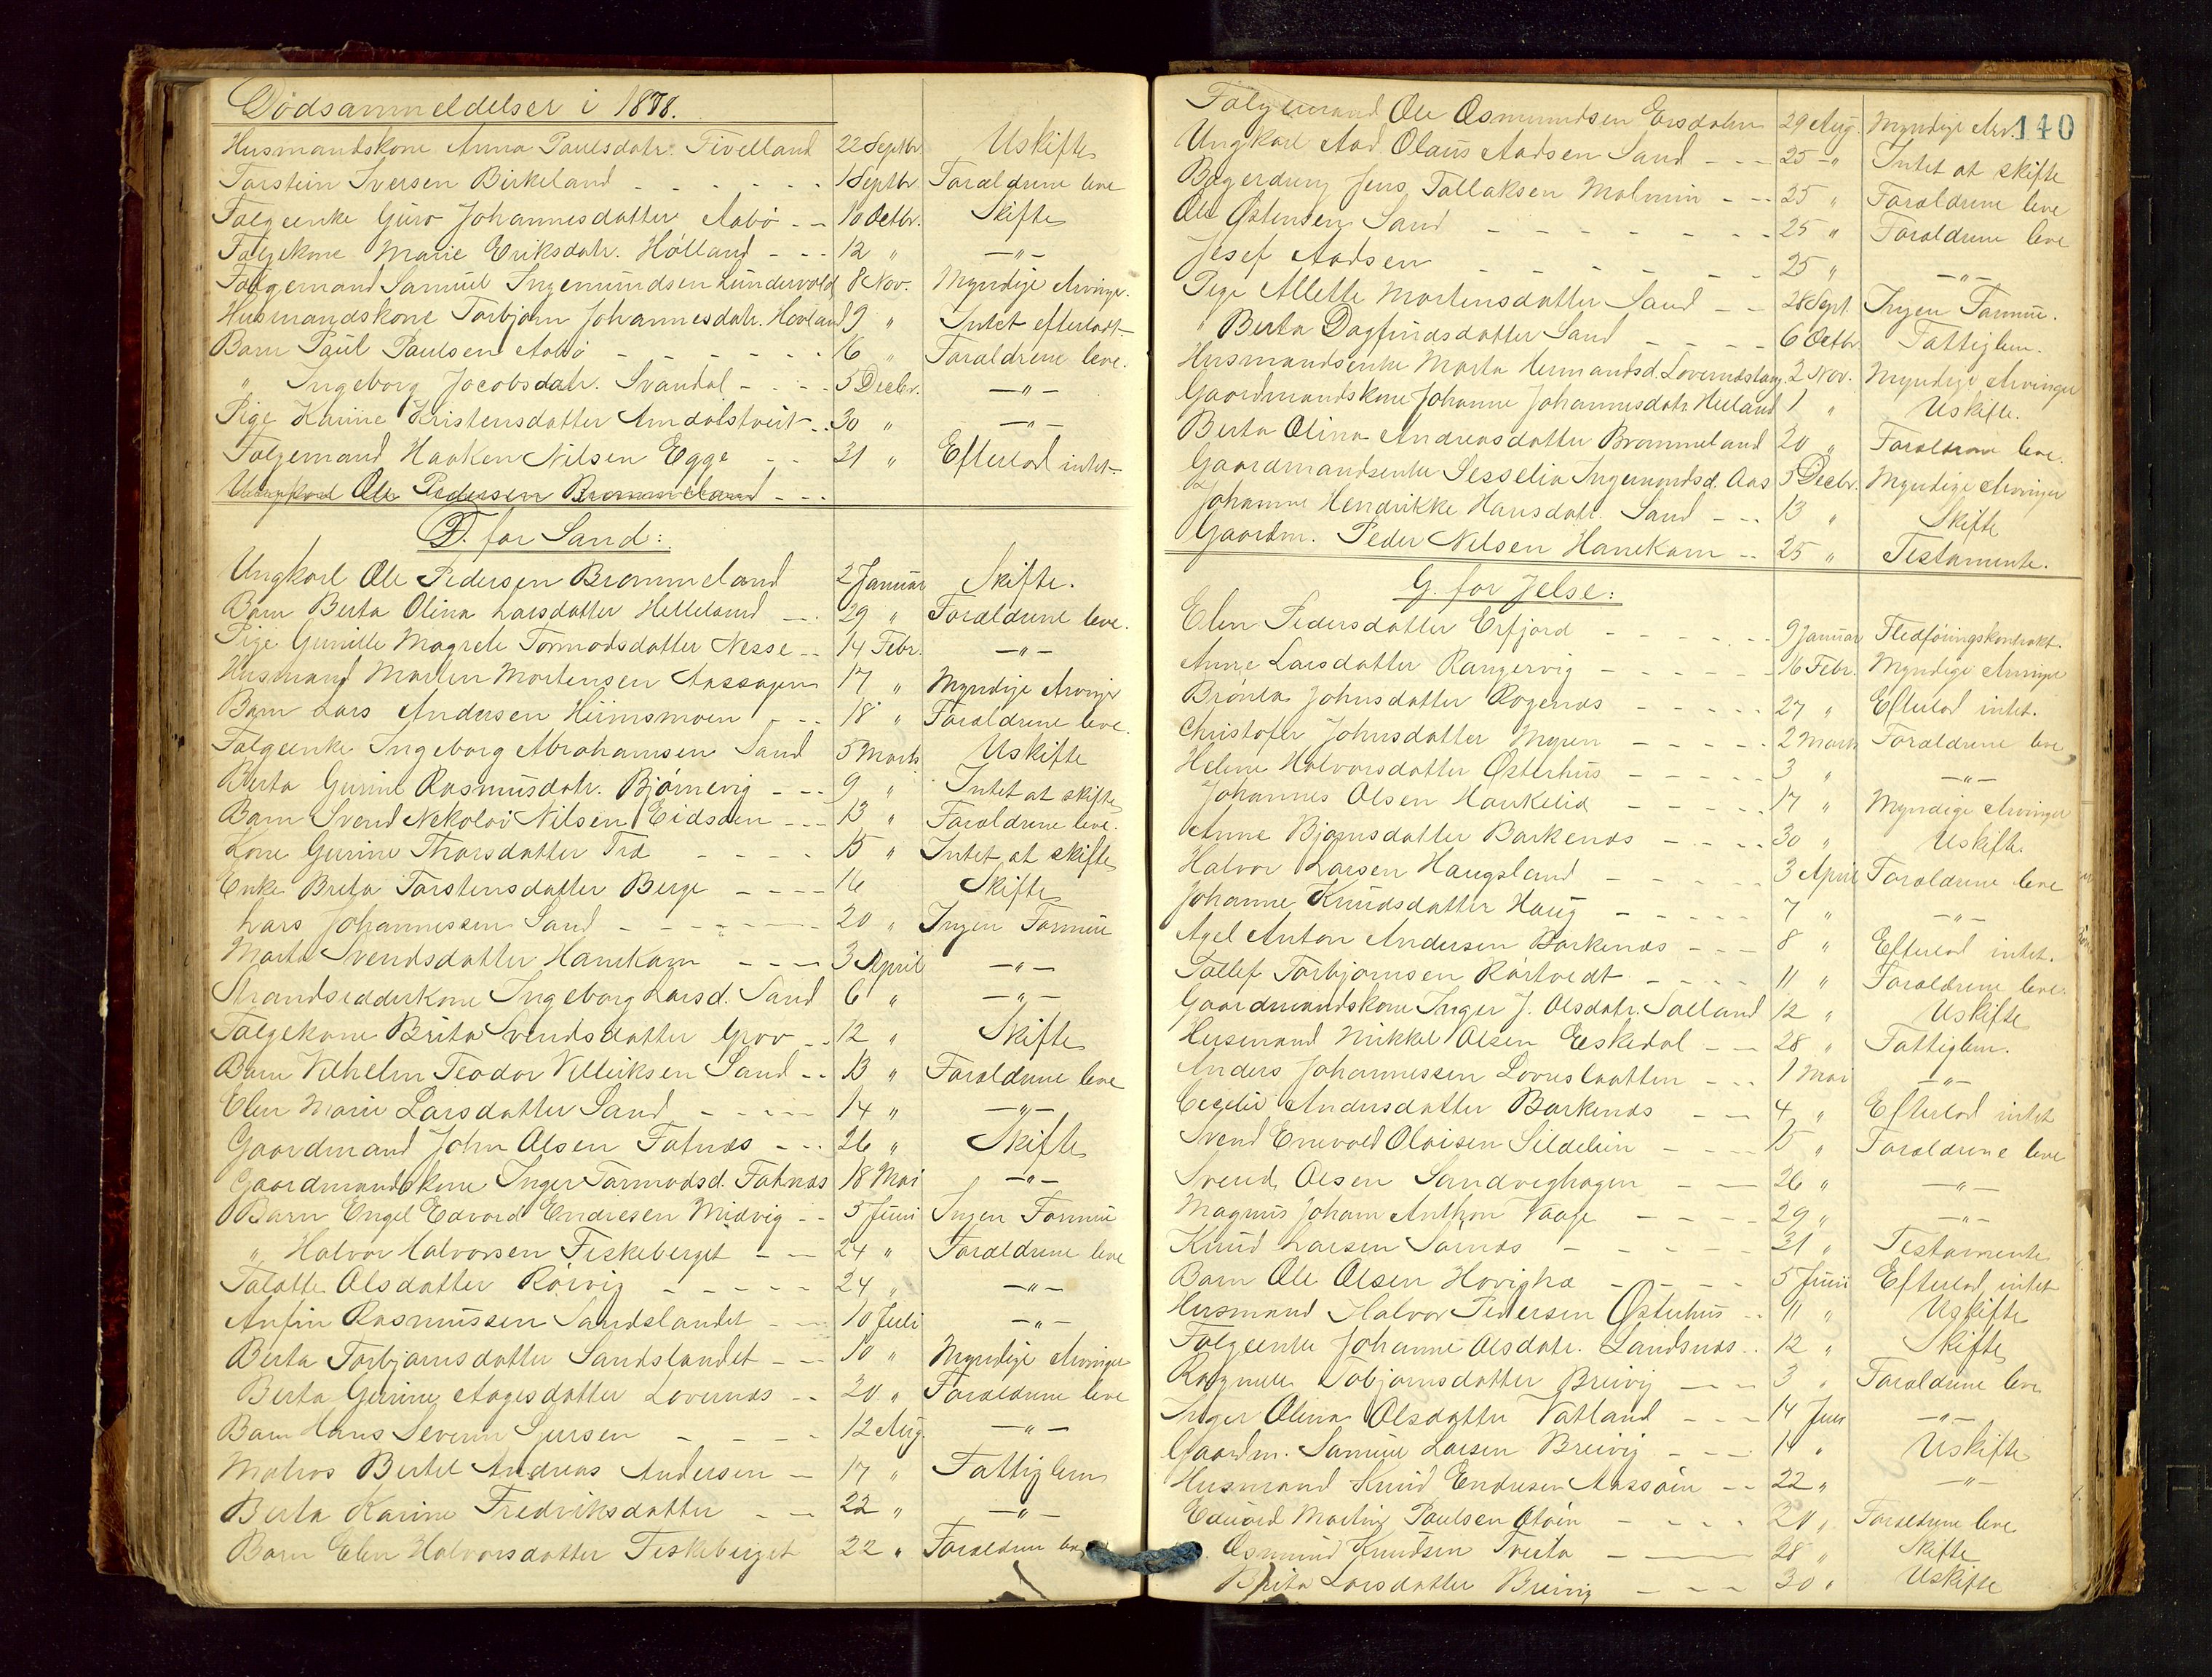 Dödsanmeldelser i 1878.
Husmandskone Anna Paulsdatr. Tivelland 22 Septbr Uskifte
Torstein Iversen Birkeland - - - - - - 1 Septbr Forældrene leve
Følgeenke Guro Johannesdatter Aabö - - 10 Octbr. Skifte
Følgekone Marie Eriksdatr. Hölland - - - 12 " - " -
Følgemand Samuel Ingemundsen Lundevold 8 Nov. Myndige Arvinger.
Husmandskone Torbjörn Johannesdatr. Hovland 9 " Intet efterladt
Barn Paul Paulsen Aabö - - - - - - 16 " Forældrene leve.
" Ingeborg Jacobsdatr. Svandal - - - - 5 Decbr. - " -
Pige Karine Kristensdatter Amdalstveit - - 30 " - " -
Følgemand Haaken Nilsen Egge - - 31 " Efterlod intet
Ungkarl Ole Pedersen Brommeland - - -
D. for Sand:
Ungkarl Ole Pedersen Brommeland 2 Januar Skifte.
Barn Berta Olina Larsdatter Helleland - - 29 " Forældrene leve.
Pige Gunille Magrete Tormodsdatter Nesse - - 14 Febr. - " -
Husmand Morten Mortensen Aassagen 17 " Myndige Arvinger
Barn Lars Andersen Hiimsmoen - - - 18 " Forældrene leve.
Følgeenke Ingeborg Abrahamsen Sand 5 Marts Uskifte
Berta Gurine Rasmusdatr. Bjørnevig - - - 9 " Intet at skifte
Barn Svend Nekolai Nilsen Eidsaaen - - - 13 " Forældrene leve.
Kone Gurine Thorsdatter Træ - - - - 15 " Intet at skifte
Enke Brita Torstensdatter Berge - - - - 16 Skifte
Lars Johannessen Sand - - - - - - 20 " Ingen Formue
Marta Svendsdatter Hanekam - - - 3 April - " -
Strandsidderkone Ingeborg Larsd. Sand 6 " - " -
Følgekone Brita Svendsdatter Grov - - 12 " Skifte
Barn Vilhelm Teodor Villiksen Sand - - 13 " Forældrene leve
Elen Marie Larsdatter Sand - - - - 14 " - " -
Gaardmand John Olsen Fatnæs - - - 26 " Skifte
Gaardmandskone Inger Tormodsd. Fatnæs 18 Mai - " -
Barn Engel Edvard Endresen Midvig - - 5 Juni Ingen Formue
" Halvor Halvorsen Fiskeberget - - 24 " Forældrene leve
Talette Olsdatter Rörvig - - - - - 24 " - " -
Anfin Rasmussen Sandslandet - - 10 Juli - " -
Berta Torbjørnsdatter Sandslandet - - 10 " Myndige Arvinger
Berta Gurine Aagesdatter Lovernæs - - 20 " Forældrene leve
Barn Hans Severin Sjursen - - - - 12 Aug. - " -
Matros Bertel Andreas Andersen - 17 " Fattiglem
Berta Karine Fredriksdatter - - 22 " - " -
Barn Elen Halvorsdatter Fiskeberget 22 " Forældrene leve
140
Følgemand Ole Osmundsen Ersdalen 29 Aug. Myndige Arv.
Ungkarl Aad Olaus Aadsen Sand - - - 25 - " Intet at skifte
Jens Tollaksen Malmin - - - 25 " Forældrene leve
Ole Østensen Sand - - - - - - - 25 " Forældrene leve
Josef Aadsen - - - - - - 25 " - " -
Pige Allette Mortensdatter Sand - - 28 Sept. Ingen Formue.
" Berta Dagfindsdatter Sand - - - - 6 Octbr. Fattiglem.
Husmandsenke Marta Hermandsd. Lovernæstang 2 Nov. Myndige Arvinger
Gaardmandskone Johanne Johannesdatr. Heiland 1 " Uskifte.
Berta Olina Andreasdatter Brommeland 20 " Forældrene leve.
Gaardmandsenke Sesselia Ingemundsd. Aas 5 Decbr. Myndige Arvinger
Johanne Hendrikke Hansdatr. Sand - - - 13 " Skifte
Gaardm. Peder Nilsen Hanekam - - 25 " Testamente.
G. for Jelse:
Elen Pedersdatter Erfjord - - - - - - 9 Januar Fledföringskontrakt.
Anne Larsdatter Rangervig - - - - - 16 Febr. Myndige Arvinger
Brönla Johnsdatter Rogenæs - - - - - 27 " Efterlod intet.
Christofer Johnsdatter Myren - - - - - 2 Marts Forældrene leve
Helene Halvorsdatter Østerhus - - - - - 3 " - " -
Johannes Olsen Haukelid - - - - - 17 " Myndige Arvinger
Anne Bjørnsdatter Barkenæs - - - - 30 " Uskifte
Halvor Larsen Haugsland - - - - - 3 April Forældrene leve
Johanne Knudsdatter Haug - - - - - 7 " - " -
Axel Anton Andersen Barkenæs - - - 8 " Efterlod intet.
Tollef Torbjørnsen Rørtvedt - - - - 11 " Forældrene leve.
Gaardmandskone Inger J. Olsdatr. Sælland 12 " Uskifte
Husmand Mikkel Olsen Eeskedal - - 28 " Fattiglem.
Anders Johannessen Lovraslaatten - - - 1 Mai - " -
Cecelie Andersdatter Barkenæs - - 4 " Efterlod intet
Svend Enevald Olaisen Sildelien - - - - 15 " Forældrene leve
Svend Olsen Sandveghagen - - - 26 " - " -
Magnus Johan Anthon Vaage - - - - 29 " - " -
Knud Larsen Særnæs - - - - - 31 " Testamente
Barn Ole Olsen Hovighæ - - - - 5 Juni Efterlod intet
Husmand Halvor Pedersen Østerhus - - 11 " Uskifte
Følgeenke Johanne Olsdatr. Landsnæs - - 12 " Skifte
Tobjørnsdatter Breivig - - - 3 " Forældrene leve
Inger Olena Olsdatter Vatland - - - 14 Juli - " -
Gaardm. Samuel Larsen Breivig - - - 14 " Uskifte
Husmand Knud Endresen Aassöen - - 22 " - " -
Edvard Martin Paulsen - - - - 24 " Forældrene leve
Osmund Knudsen Tveita - - 28 " Skifte
Brita Larsdatter Breivig - - - 30 " Uskifte